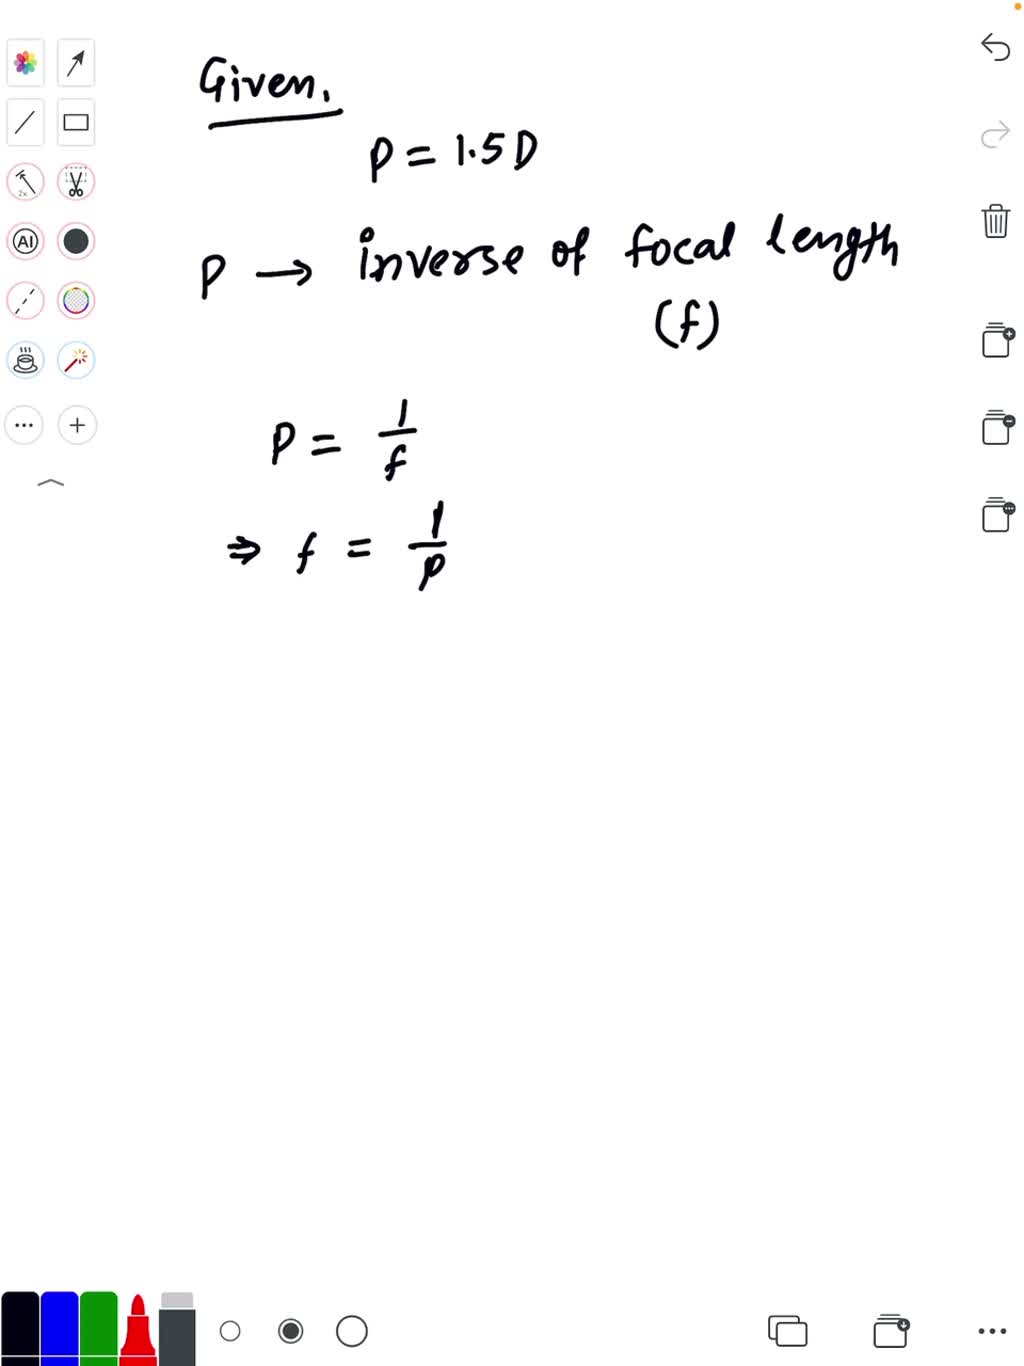 Given.
P = 1.5 D
P → inverse of focal length
(f)
P = 1/f
⇒ f = 1/P
2x
AI